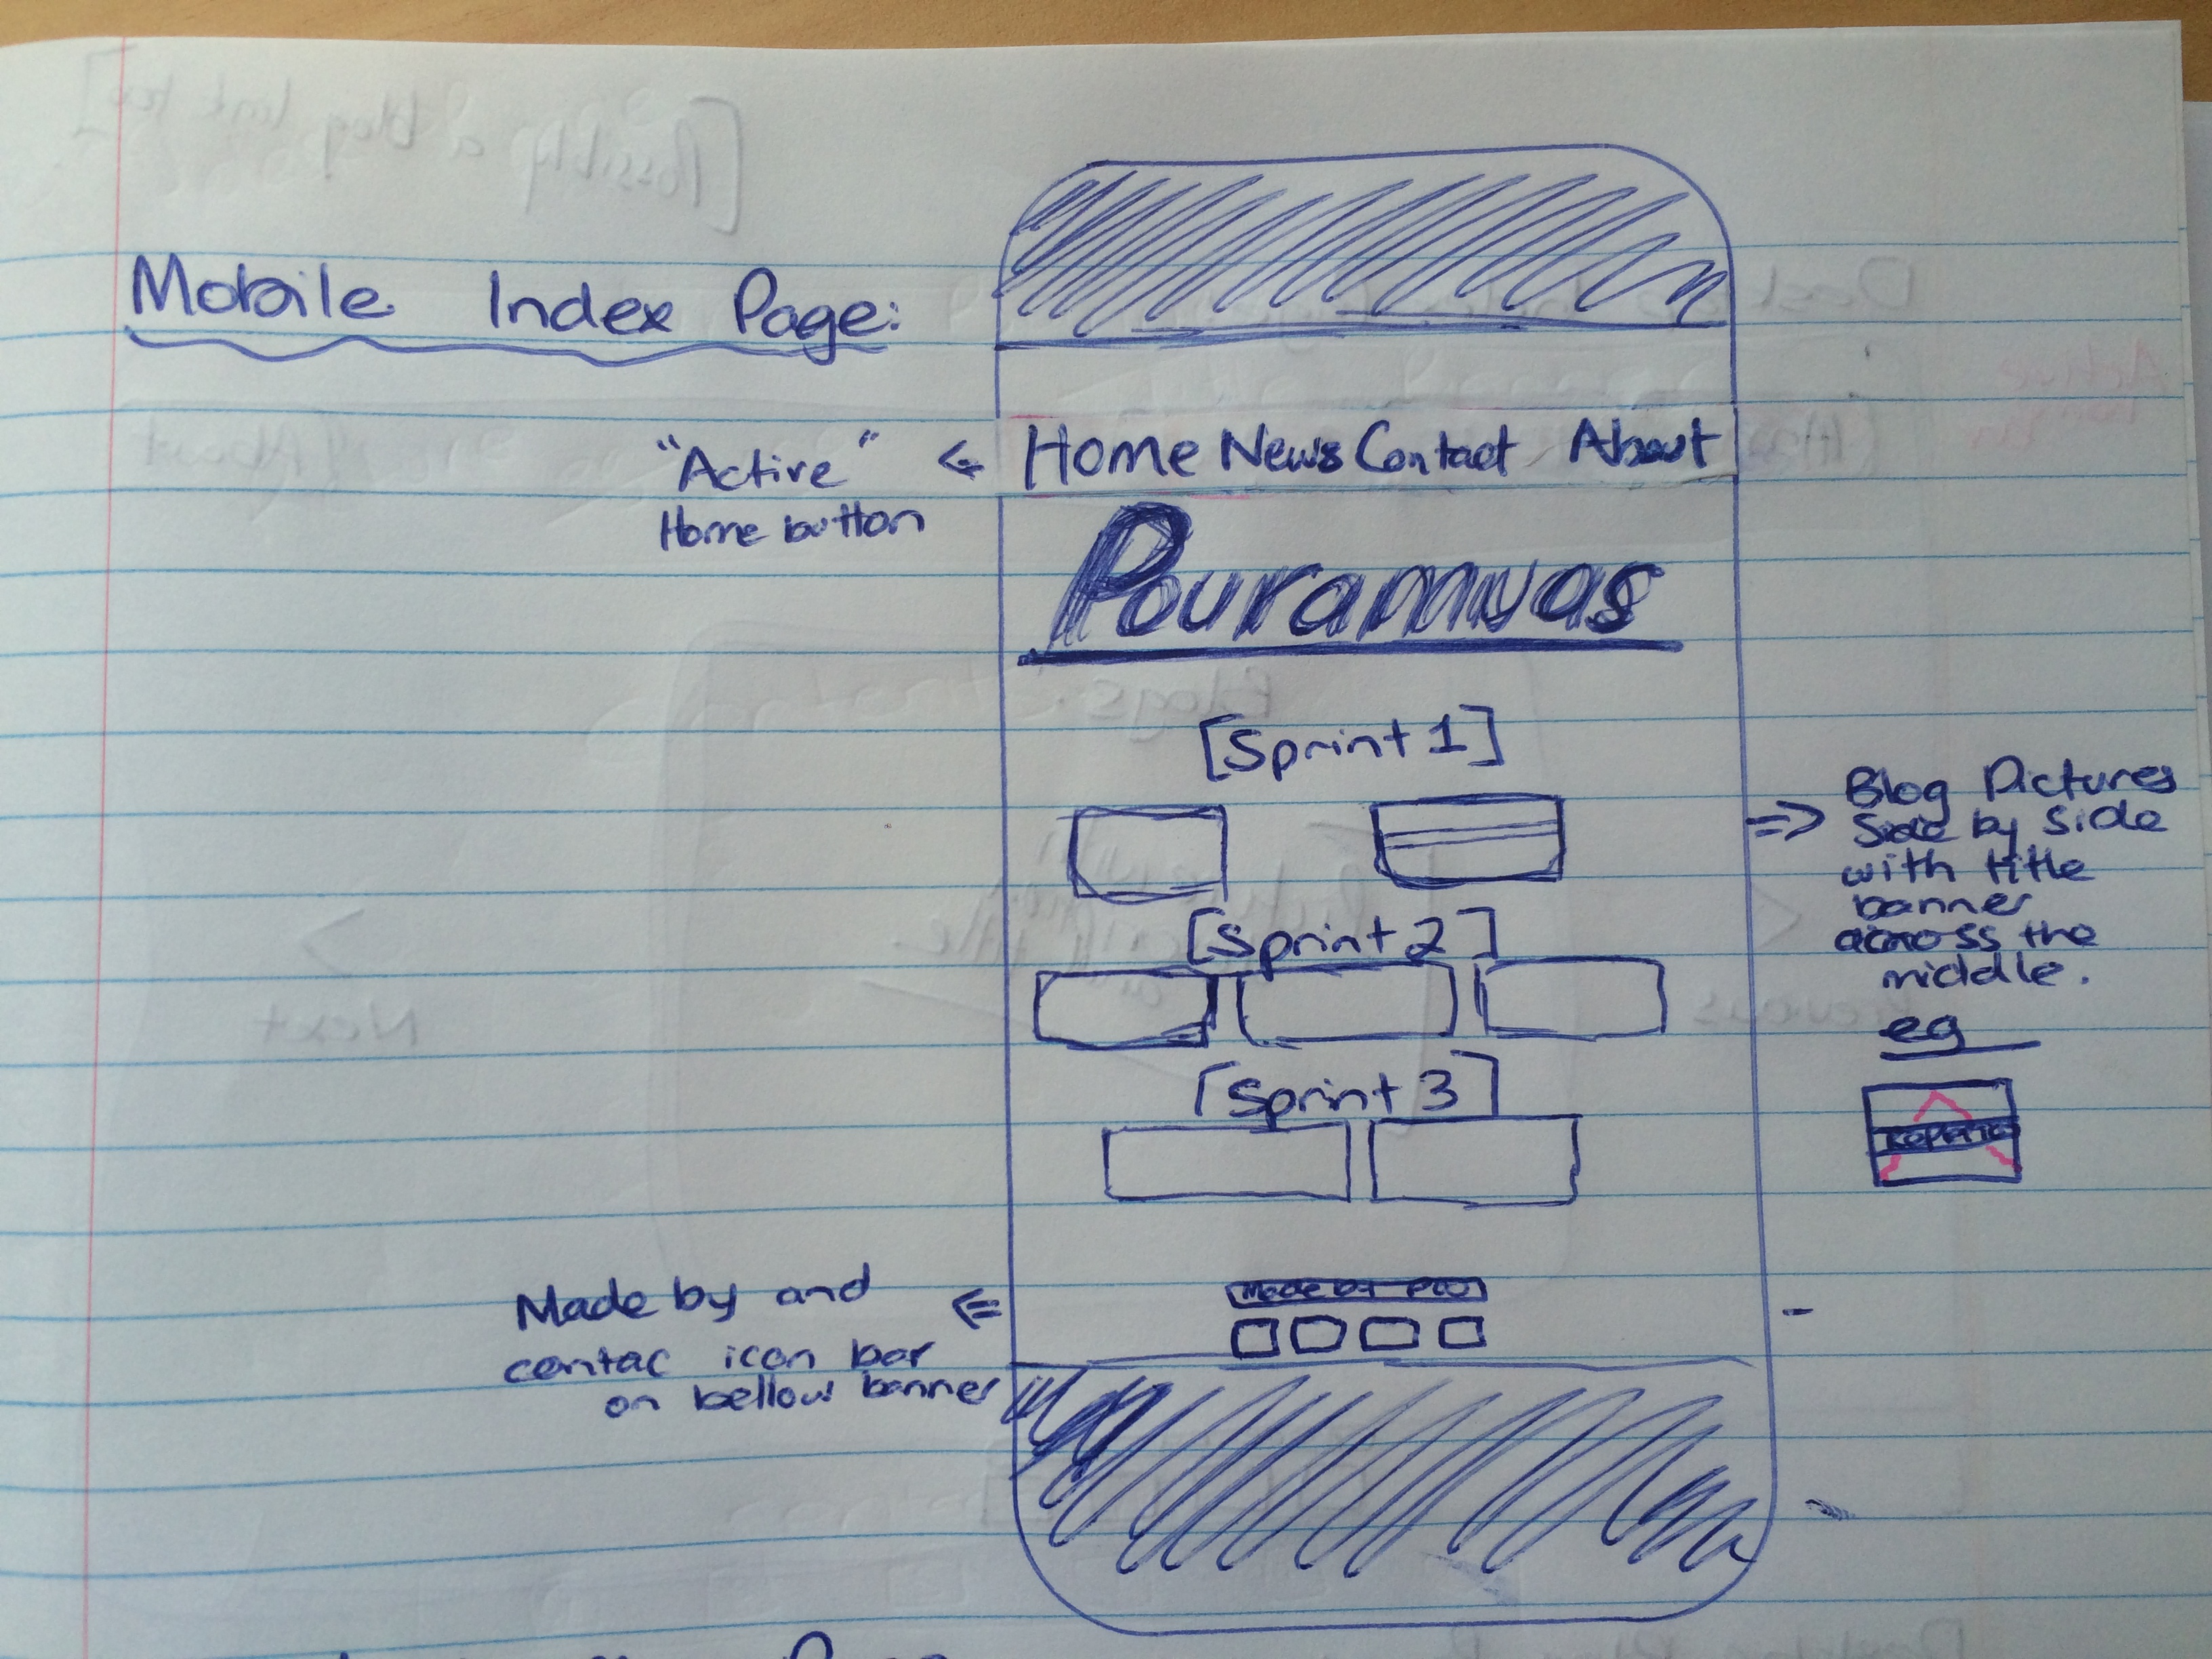 Mobile Index Page:
"Active"
Home button
Home News Contact About
Pouramuas
[Sprint 1]
Blog Pictures
side by side
with title
banner
across the
middle.
eg
[Sprint 2]
[Sprint 3]
Made by and
contac icon bar
on bellow banner
Made by